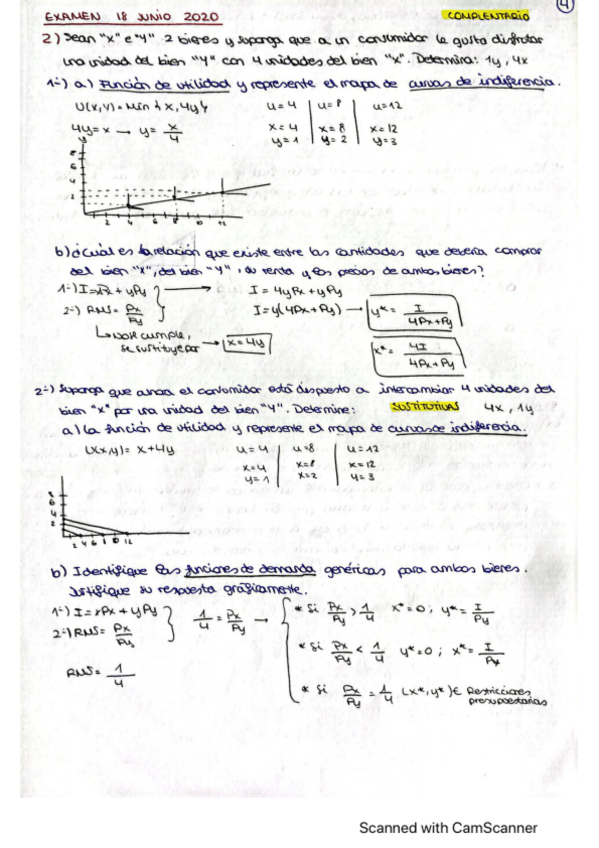 4
EXAMEN 18 JUNIO 2020 COMPLENTARIO
2) Sean "x" e "y" 2 bienes y suponga que a un consumidor le gusta disfrutar
una unidad del bien "y" con 4 unidades del bien "x". Determina: 1y, 4x
1-) a) Función de utilidad y represente el mapa de curvas de indiferencia.
U(x,y) = Min {x, 4y} u=4 u=8 u=12
4y=x → y= x/4 x=4 x=8 x=12
y=1 y=2 y=3
y
8
6
4
2
2 4 6 8 10 12
b) ¿cuál es la relación que existe entre las cantidades que debería comprar
del bien "x", del bien "y", su renta y los precios de ambos bienes?
1-) I = xPx + yPy → I = 4yPx + yPy
2-) RMS = Px/Py I = y(4Px + Py) → y* = I/(4Px+Py)
↳ no se cumple, se sustituye por → x=4y x* = 4I/(4Px+Py)
2-) Suponga que ahora el consumidor está dispuesto a intercambiar 4 unidades del
bien "x" por una unidad del bien "y". Determine: SUSTITUTIVAS 4x, 1y
a) la función de utilidad y represente el mapa de curvas de indiferencia.
U(x,y) = x+4y u=4 u=8 u=12
x=4 x=8 x=12
y=1 x=2 y=3
8
6
4
2
2 4 6 8 10 12
b) Identifique las funciones de demanda genéricas para ambos bienes.
Justifique su respuesta gráficamente.
1-) I = xPx + yPy
2-) RMS = Px/Py
1/4 = Px/Py →
RMS = 1/4
* Si Px/Py > 1/4 x*=0; y* = I/Py
* Si Px/Py < 1/4 y*=0; x* = I/Px
* Si Px/Py = 1/4 (x*,y*) ∈ Restricciones
presupuestarias
Scanned with CamScanner